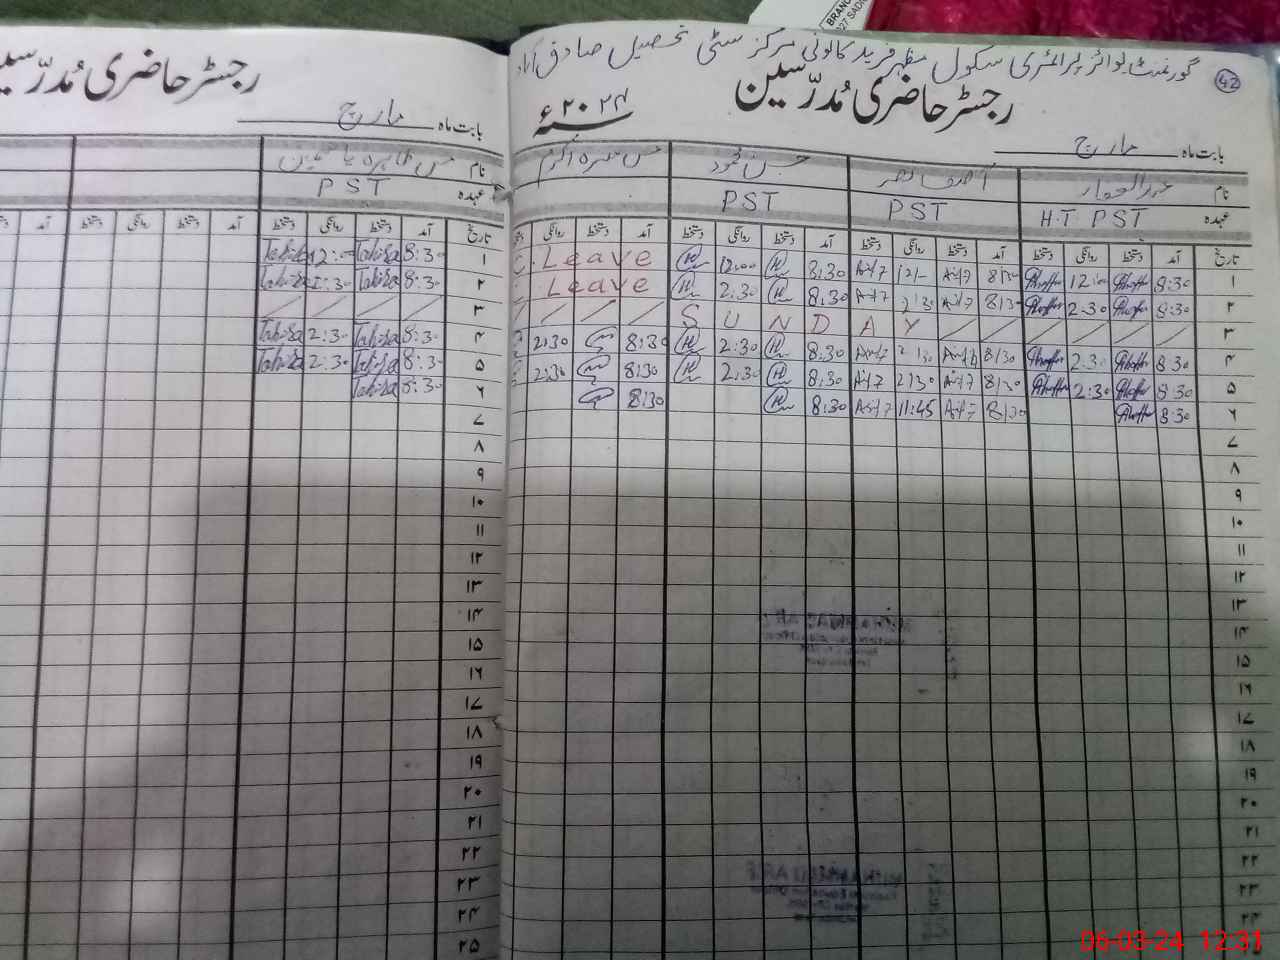 گورنمنٹ بوائز پرائمری سکول مظہر فرید کالونی مرکز سٹی تحصیل صادق آباد
42
رجسٹر حاضری مُدرّسین
۲۰۲۴ء
بابت ماہ مارچ
نام عبدالغفار آصف نصر حسن محمود مس سدرہ اکرم
عہدہ H.T PST PST PST
تاریخ آمد دستخط روانگی دستخط آمد دستخط روانگی دستخط آمد دستخط روانگی دستخط آمد دستخط روانگی
۱ 8:30 12:00 8/30 Asif 12/- Asif 8:30 12:00 Leave
۲ 8:30 2:30 8/30 Asif 2/30 Asif 8:30 2:30 Leave
۳ SUNDAY
۴ 8:30 2:30 8/30 Asif 2/30 Asif 8:30 2:30 8:30 2:30
۵ 8:30 2:30 8/30 Asif 2/30 Asif 8:30 2:30 8:30 2:30
۶ 8:30 8/30 Asif 11:45 Asif 8:30 8:30
۷
۸
۹
۱۰
۱۱
۱۲
۱۳
۱۴
۱۵
۱۶
۱۷
۱۸
۱۹
۲۰
۲۱
۲۲
۲۳
۲۴
رجسٹر حاضری مُدرّسین
بابت ماہ مارچ
نام مس طاہرہ یاسمین
عہدہ PST
تاریخ آمد دستخط روانگی دستخط آمد دستخط روانگی دستخط آمد
۱ 8:30 Tahira 12:00 Tahira
۲ 8:30 Tahira 2:30 Tahira
۳
۴ 8:30 Tahira 2:30 Tahira
۵ 8:30 Tahira 2:30 Tahira
۶ 8:30 Tahira
۷
۸
۹
۱۰
۱۱
۱۲
۱۳
۱۴
۱۵
۱۶
۱۷
۱۸
۱۹
۲۰
۲۱
۲۲
۲۳
۲۴
۲۵
06-03-24 12:31